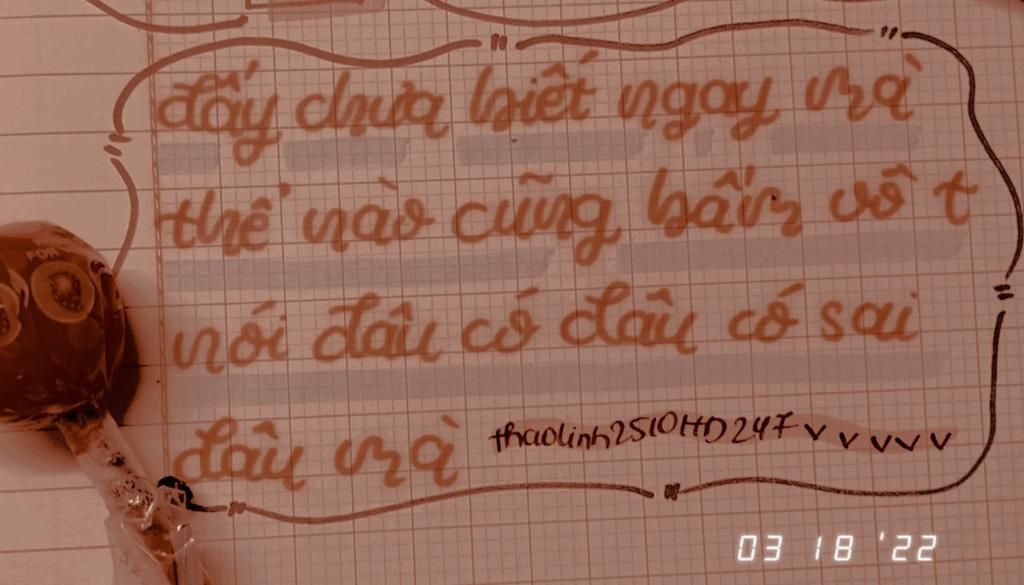 đấy chưa biết ngay mà
thể nào cũng bấm vô t
nói đâu có đâu có sai
đâu mà
thaolinh2510HD247 v v v v v
03 18 '22